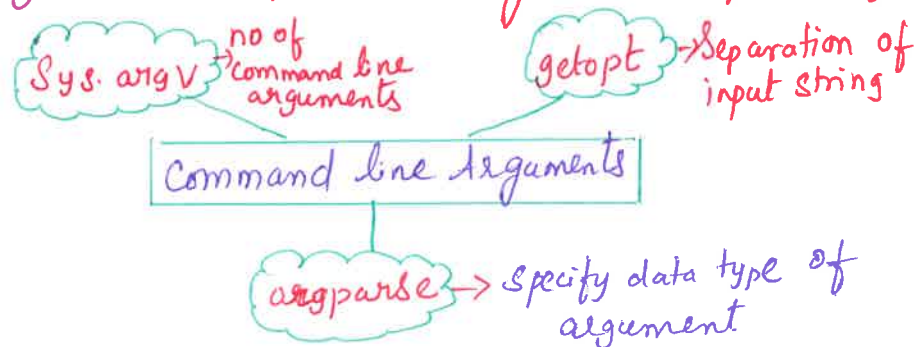 Sys. argv → no of
command line
arguments
getopt → Separation of
input string
Command line Arguments
argparse → Specify data type of
argument